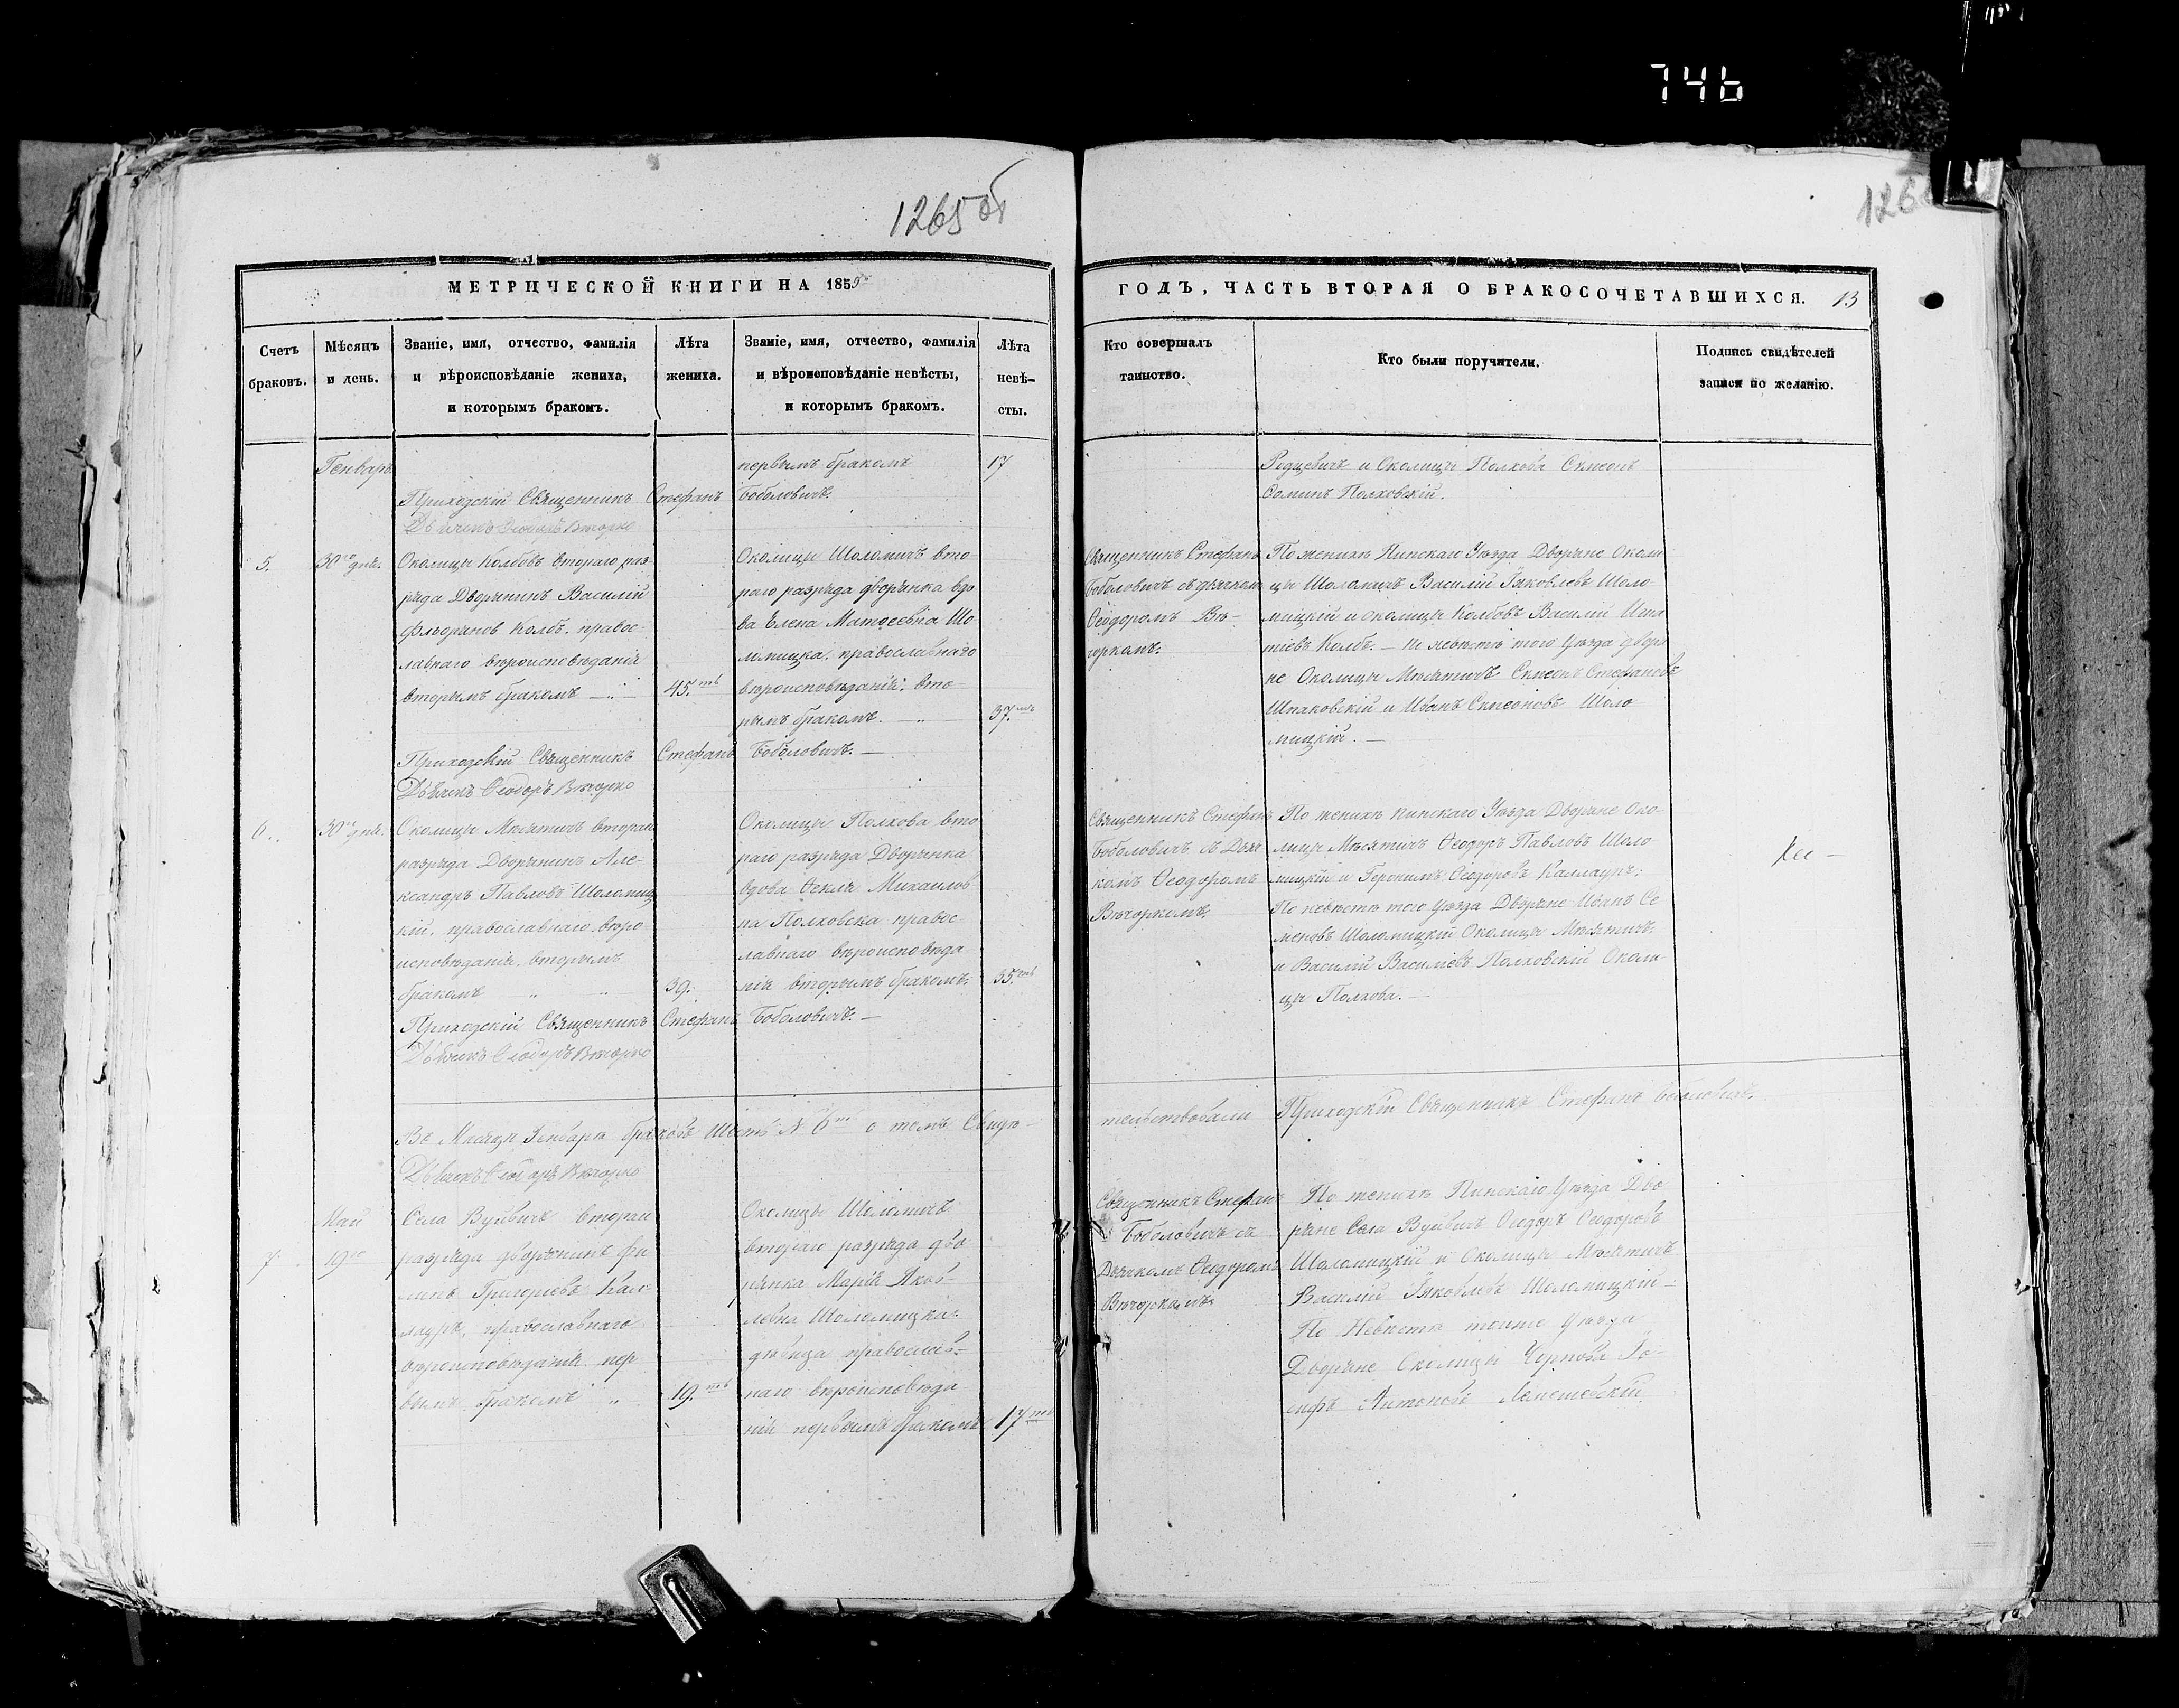 746
1265об
126
МЕТРИЧЕСКОЙ КНИГИ НА 1855
ГОДЪ, ЧАСТЬ ВТОРАЯ О БРАКОСОЧЕТАВШИХСЯ. 13
Счетъ браковъ.
Мѣсяцъ и день.
Званіе, имя, отчество, фамилія
и вѣроисповѣданіе жениха,
и которымъ бракомъ.
Лѣта жениха.
Званіе, имя, отчество, фамилія
и вѣроисповѣданіе невѣсты,
и которымъ бракомъ.
Лѣта невѣ-
сты.
Кто совершалъ
таинство.
Кто были поручители.
Подпись свидѣтелей
записи по желанію.
Генварь
первымъ бракомъ
17
Приходскій Священникъ Стефанъ Боболовичъ.
Дьячекъ Ѳеодоръ Вѣчорко
Родцевичъ и Околицы Полхова Симеонъ
Полховскій.
5.
30го дня.
Околицы Колбовъ втораго раз
ряда Дворянинъ Василій
Колбъ. правос-
лавнаго вѣроисповѣданія
вторымъ бракомъ
45.
Околицы Шоломичъ вто
раго разряда дворянка вдо
ва Елена Матѳеевна Шо
ломицка, православнаго
вѣроисповѣданія; вто-
рымъ бракомъ.
37.
Священникъ Стефанъ
Боболовичъ съ дьячкомъ
Ѳеодоромъ Вѣ-
чоркомъ.
По женихѣ Пинскаго Уѣзда Дворяне Околи
цы Шоломичъ Василій Іяковлевъ Шоло-
мицкій и околицы Колбовъ Василій Игна
тіевъ Колбъ. — По невѣстѣ того Уѣзда дворя
не Околицы Мѣсятичъ Симеонъ Стефановъ
Шпаковскій и Иванъ Симеоновъ Шоло-
мицкій. —
Приходскій Священникъ Стефанъ Боболовичъ. —
Дьячекъ Ѳеодоръ Вѣчорко
6.
30го дня.
Околицы Мѣсятичъ втораго
разряда Дворянинъ Але-
ксандръ Павловъ Шоломиц
кій, православнаго вѣро-
исповѣданія, вторымъ
бракомъ
39.
Околицы Полхова вто
раго разряда Дворянка
вдова Ѳекла Михаилов
на Полховска правос-
лавнаго вѣроисповѣда
нія вторымъ бракомъ.
35.
Священникъ Стефанъ
Боболовичъ съ Дьяч
комъ Ѳеодоромъ
Вѣчоркомъ.
По женихѣ Пинскаго Уѣзда Дворяне Око-
лицы Мѣсятичъ Ѳеодоръ Павловъ Шоло
мицкій и Геронимъ Ѳеодоровъ Каллауръ:
По невѣстѣ того Уѣзда Дворяне Иванъ Се
меновъ Шоломицкій Околицы Мѣсятичъ.
и Василій Василіевъ Полховскій Околи-
цы Полхова. —
Приходскій Священникъ Стефанъ Боболовичъ. —
Дьячекъ Ѳеодоръ Вѣчорко
Въ Мѣсяцѣ Генварѣ браковъ Шесть N 6 о томъ Свидѣ-
тельствовали Приходскій Священникъ Стефанъ Боболовичъ.
Дьячекъ Ѳеодоръ Вѣчорко
Май
7.
19го
Села Вуйвичъ втораго
разряда дворянинъ Фи
липъ Григоріевъ Кал-
лауръ, православнаго
вѣроисповѣданія пер
вымъ бракомъ
19.
Околицы Шоломичъ
втораго разряда дво
рянка Марія Яков-
левна Шоломицка.
дѣвица православ-
наго вѣроисповѣда
нія первымъ бракомъ
17
Священникъ Стефанъ
Боболовичъ съ
Дьячкомъ Ѳеодоромъ
Вѣчоркомъ.
По женихѣ Пинскаго Уѣзда Дво
ряне Села Вуйвичъ Ѳеодоръ Ѳеодоровъ
Шоломицкій и Околицы Мѣсятичъ
Василій Іяковлевъ Шоломицкій —
По Невѣстѣ тоиже Уѣзда
Дворяне Околицы Чернова Іо-
сифъ Антоновъ Лемешевскій